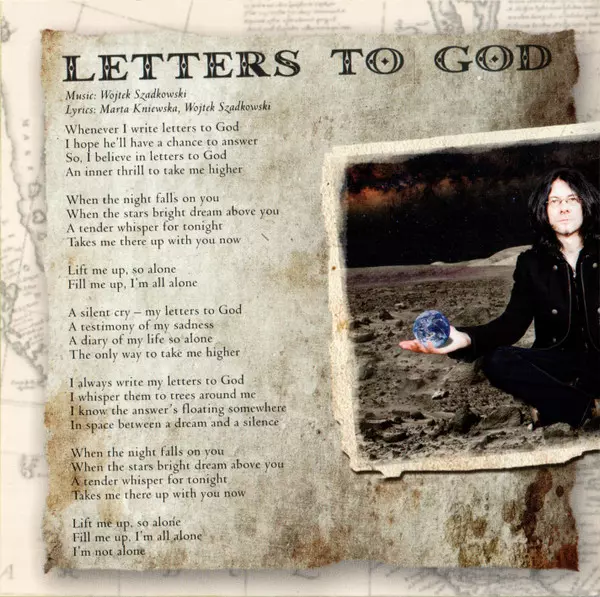 LETTERS TO GOD
Music: Wojtek Szadkowski
Lyrics: Marta Kniewska, Wojtek Szadkowski
Whenever I write letters to God
I hope he'll have a chance to answer
So, I believe in letters to God
An inner thrill to take me higher
When the night falls on you
When the stars bright dream above you
A tender whisper for tonight
Takes me there up with you now
Lift me up, so alone
Fill me up, I'm all alone
A silent cry – my letters to God
A testimony of my sadness
A diary of my life so alone
The only way to take me higher
I always write my letters to God
I whisper them to trees around me
I know the answer's floating somewhere
In space between a dream and a silence
When the night falls on you
When the stars bright dream above you
A tender whisper for tonight
Takes me there up with you now
Lift me up, so alone
Fill me up, I'm all alone
I'm not alone